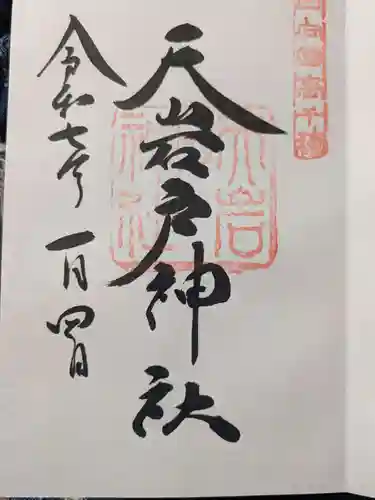 天岩戸神社
令和七年
一月四日